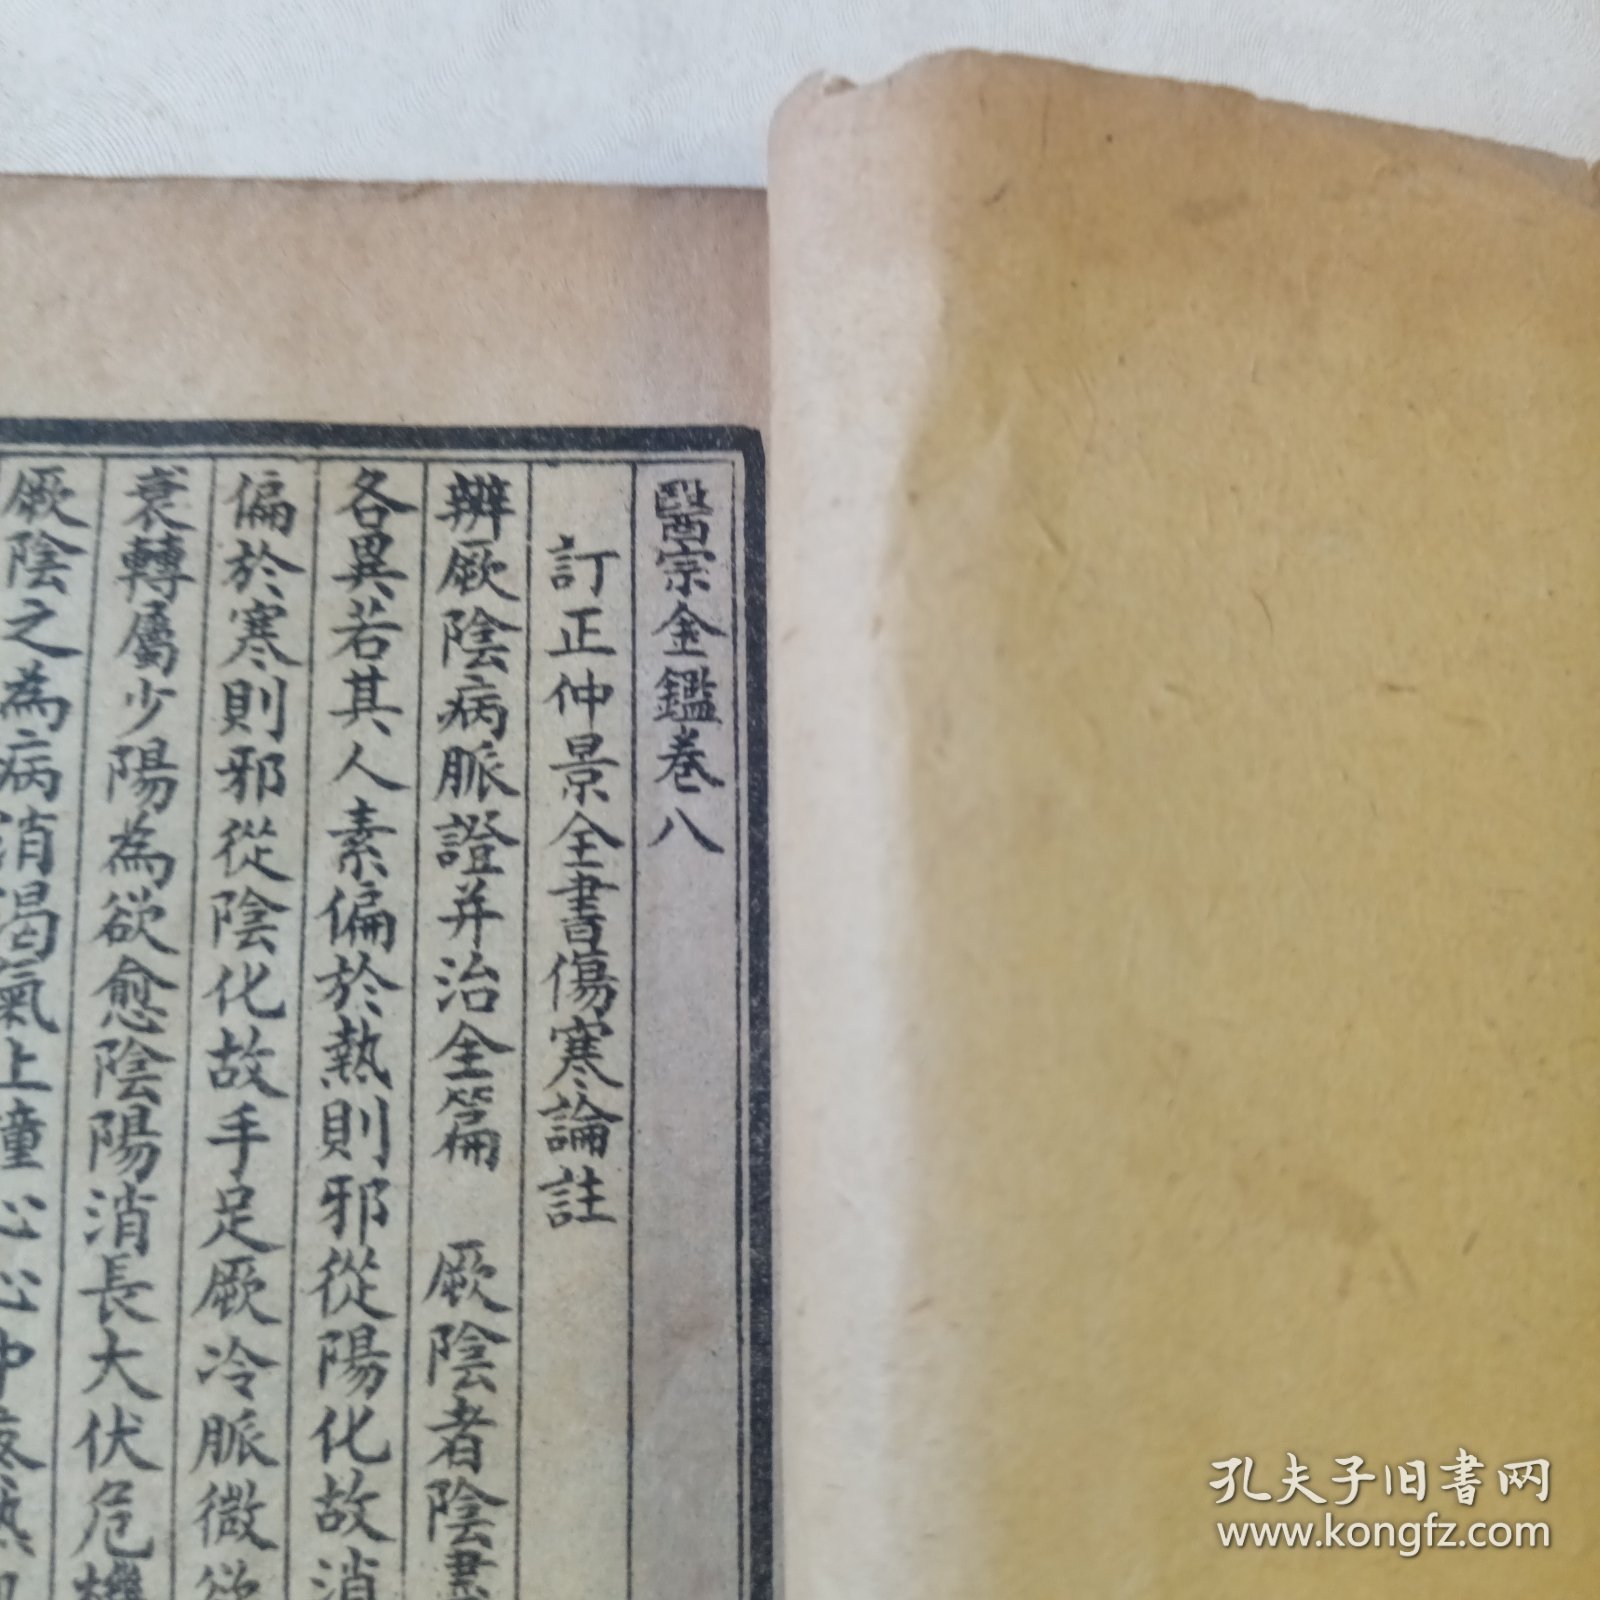 醫宗金鑑卷八
訂正仲景全書傷寒論註
辨厥陰病脈證并治全篇　厥陰者陰盡
各異若其人素偏於熱則邪從陽化故消
偏於寒則邪從陰化故手足厥冷脈微欲
衰轉屬少陽為欲愈陰陽消長大伏危機
厥陰之為病消渴氣上撞心心中疼熱
孔夫子旧书网
www.kongfz.com